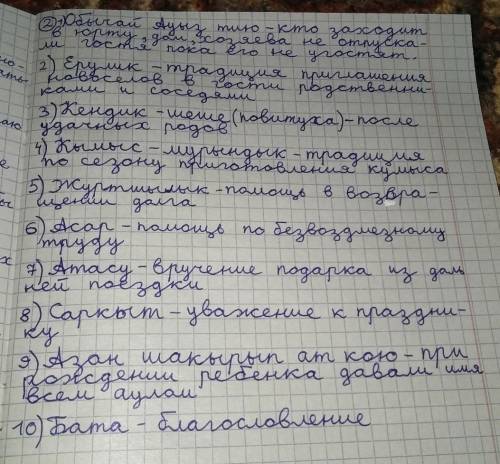 ② Обычай Ауыз тию - кто заходит
в юрту, дом, хозяева не отпуска-
ли гостя пока его не угостят.
2) Ерулик - традиция приглашения
новоселов в гости родственни-
ками и соседями
3) Кендик - шеше (повитуха) - после
удачных родов
4) Кымыс - мурындык - традиция
по сезону приготовления кумыса
5) Журтшылык - помощь в возвра-
щении долга
6) Асар - помощь по безвоздмезному
труду
7) Атасу - вручение подарка из даль
ней поездки
8) Саркыт - уважение к праздни-
ку
9) Азан шакырып ат кою - при
рождении ребенка давали имя
всем аулом
10) Бата - благословление